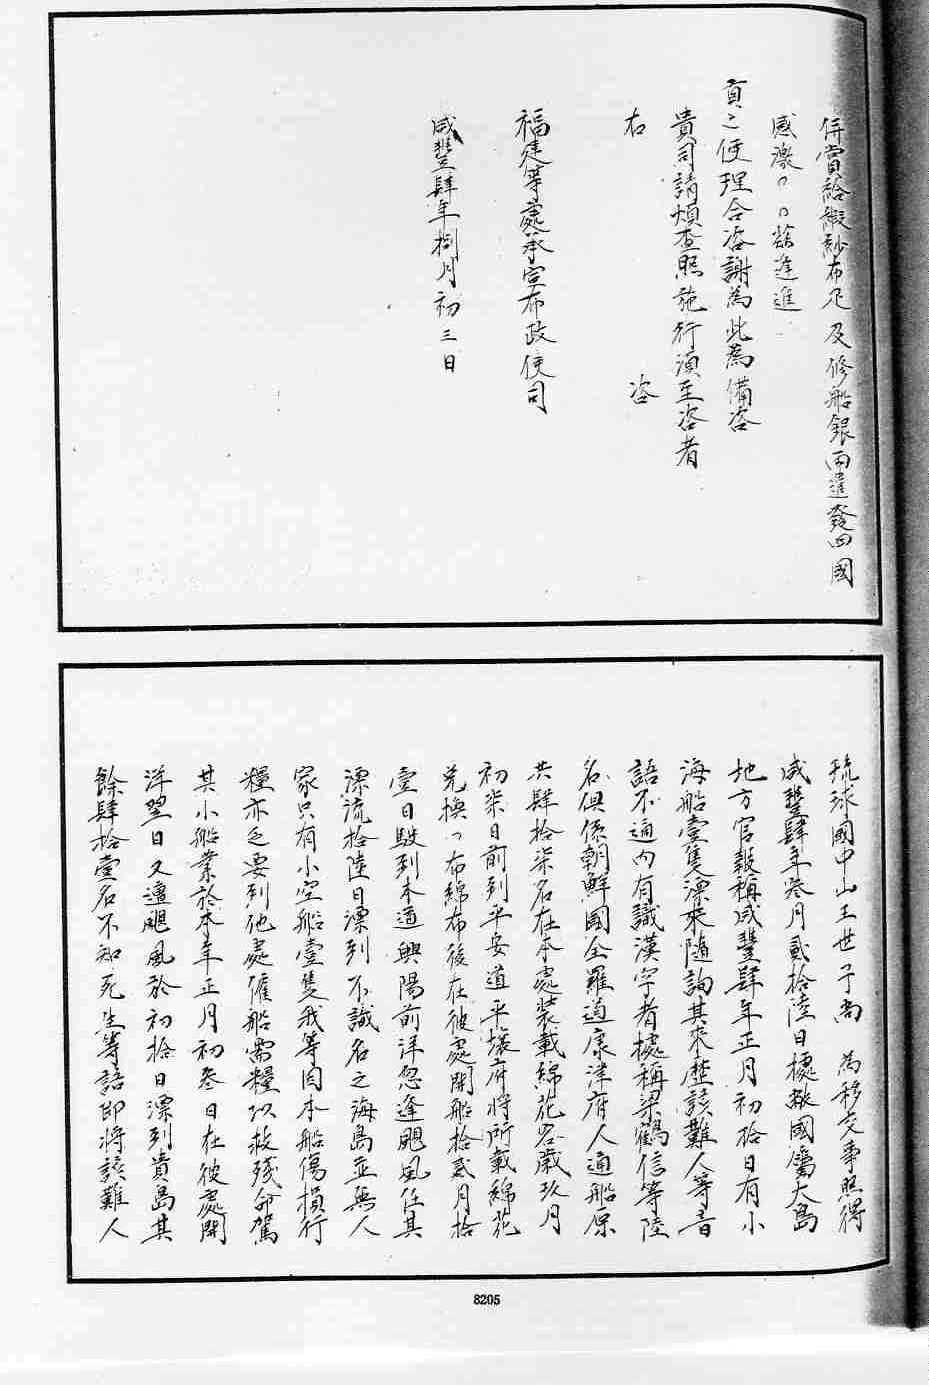 併賞給緞紗布疋及修船銀両遣發回國
感激〻〻茲逢進
貢之便理合咨謝為此為備咨
貴司請煩查照施行須至咨者
右　咨
福建等處承宣布政使司
咸豐肆年捌月初三日
琉球國中山王世子尚　為移交事照得
咸豐肆年叁月貳拾陸日據敝國屬大島
地方官報稱咸豐肆年正月初拾日有小
海船壹隻漂來隨詢其來歷該難人等音
語不通內有識漢字者據稱梁鶴信等陸
名俱係朝鮮國全羅道康津府人通船原
共肆拾柒名在本處装載綿花客歲玖月
初柒日前到平安道平壤府將所載綿花
兑換〻布綿布後在彼處開船拾貳月拾
壹日駛到本道興陽前洋忽逢颶風任其
漂流拾陸日漂到不識名之海島並無人
家只有小空船壹隻我等因本船傷損行
糧亦乏要到他處僱船需糧以救殘命駕
其小船業於本年正月初叁日在彼處開
洋翌日又遭颶風於初拾日漂到貴島其
餘肆拾壹名不知死生等語即將該難人
8205